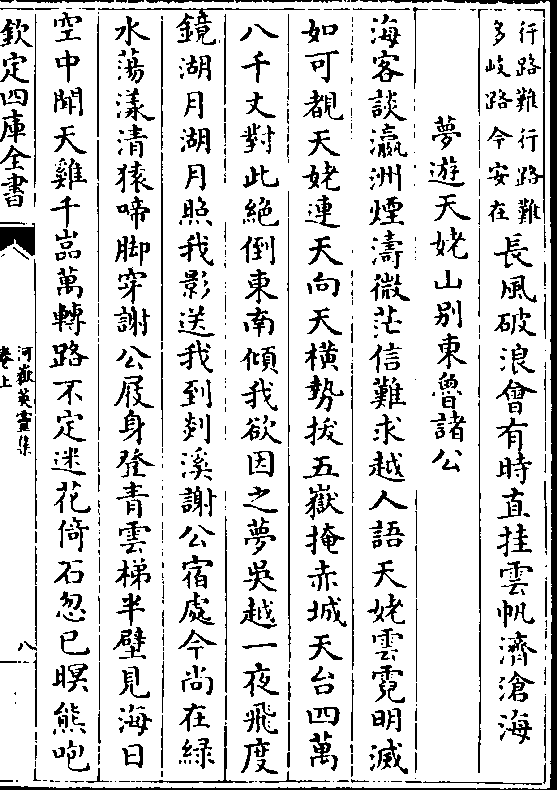 行路難行路難
多岐路今安在
長風破浪㑹有時直挂雲帆濟滄海
夢遊天姥山别東魯諸公
海客談瀛洲煙濤微茫信難求越人語天姥雲霓明滅
如可覩天姥連天向天橫勢拔五嶽掩赤城天台四萬
八千丈對此絶倒東南傾我欲因之夢吳越一夜飛度
鏡湖月湖月照我影送我到剡溪謝公宿處今尚在緑
水蕩漾清猿啼脚穿謝公屐身登青雲梯半壁見海日
空中聞天雞千嵓萬轉路不定迷花倚石忽已暝熊咆
欽定四庫全書
河嶽英靈集
卷上
八